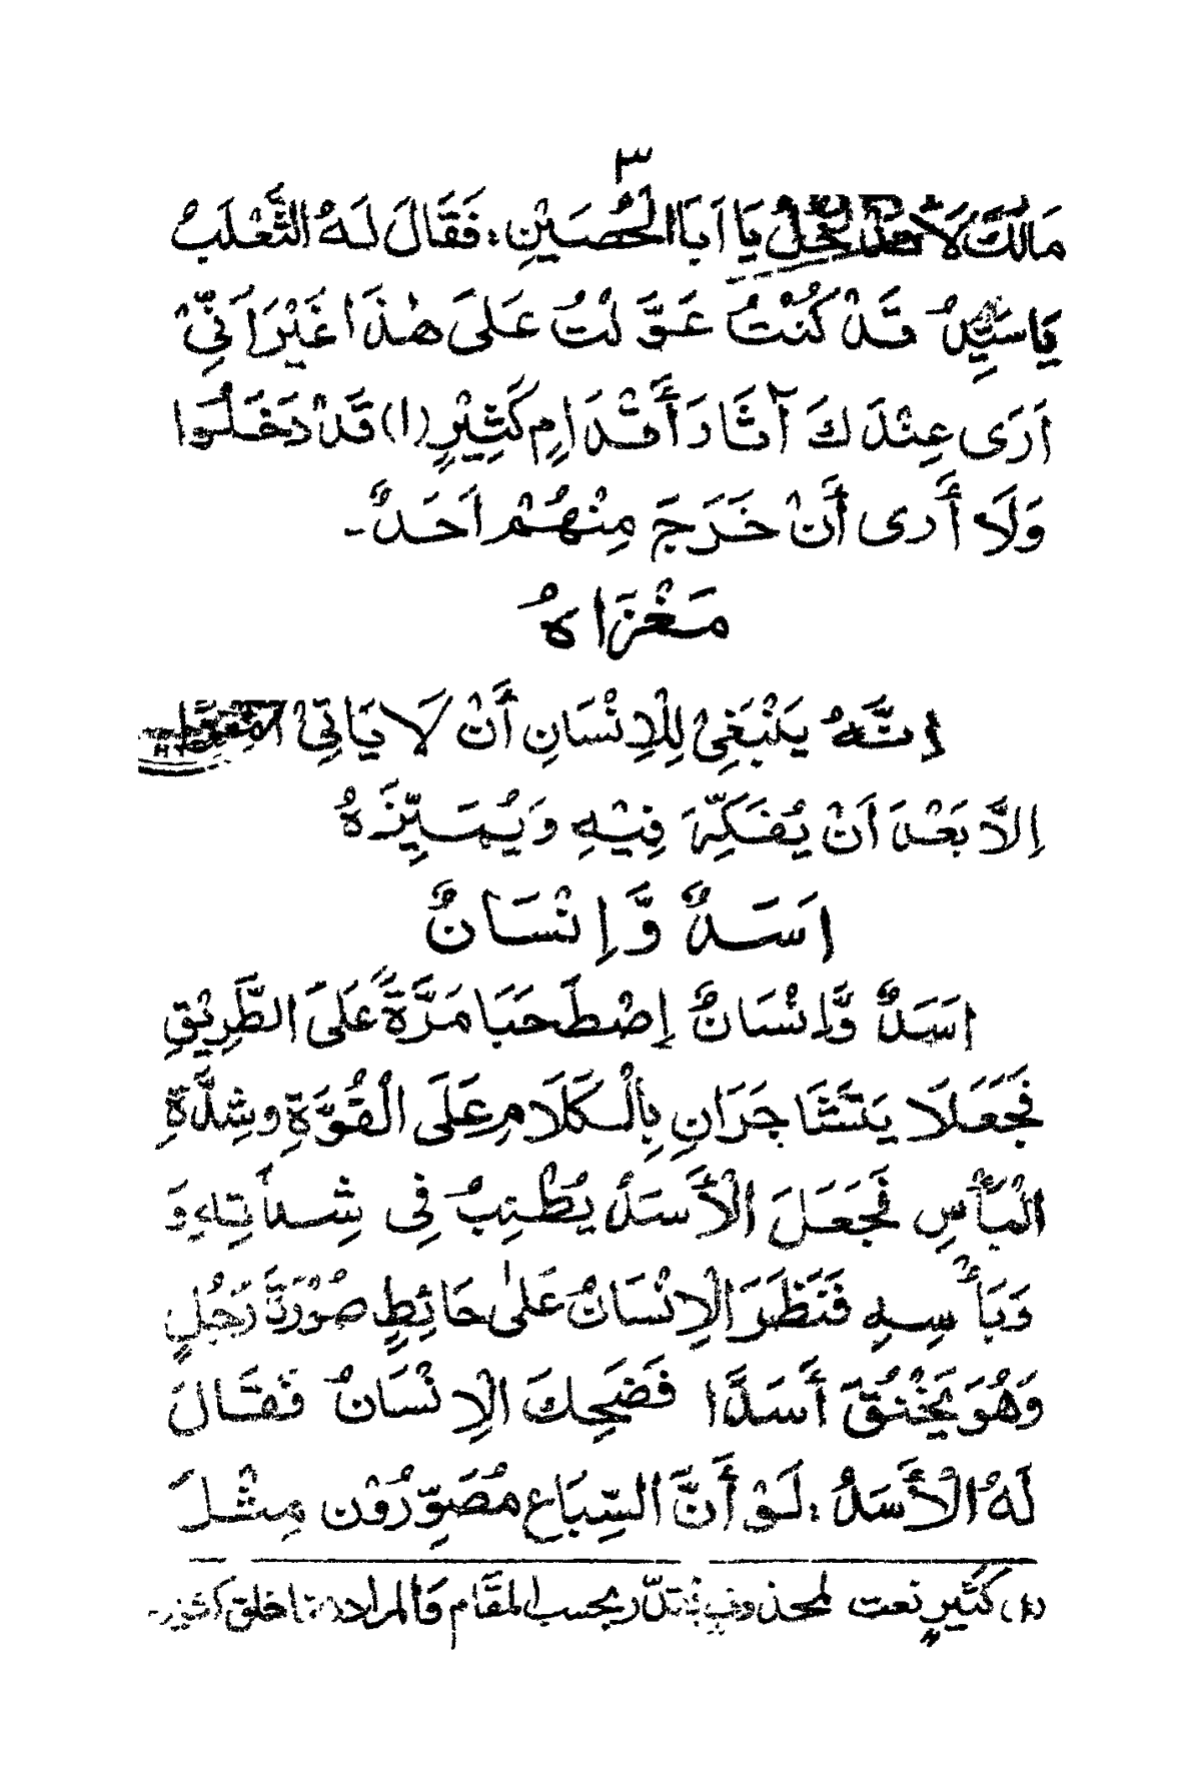 ٣
مَالَكَ لَا تَدْخُلُ يَا اَبَا الْحُصَيْنِ: فَقَالَ لَهُ الثَّعْلَبُ
يَا سَيِّدُ قَدْ كُنْتُ عَوَّلْتُ عَلَى هٰذَا غَيْرَ اَنِّيْ
اَرَى عِنْدَكَ آثَارَ أَقْدَامٍ كَثِيْرٍ (١) قَدْ دَخَلُوا
وَلَا أَرى أَنْ خَرَجَ مِنْهُمْ اَحَدٌ۔
مَغْزَاهُ
اِنَّهُ يَنْبَغِيْ لِلْاِنْسَانِ أَنْ لَا يَاتِيْ
اِلَّا بَعْدَ اَنْ يُفَكِّرَ فِيْهِ وَيُمَيِّزَهُ
اَسَدٌ وَّاِنْسَانٌ
اَسَدٌ وَّاِنْسَانٌ اِصْطَحَبَا مَرَّةً عَلَى الطَّرِيْقِ
فَجَعَلَا يَتَشَاجَرَانِ بِالْكَلَامِ عَلَى الْقُوَّةِ وشِدَّةِ
الْبَأْسِ فَجَعَلَ الْأَسَدُ يُطْنِبُ فِي شِدَّتِهِ وَ
وَبَأْسِهِ فَنَظَرَ الْاِنْسَانُ عَلىٰ حَائِطٍ صُوْرَةَ رَجُلٍ
وَهُوَ يَخْنُقُ أَسَدًا فَضَحِكَ الْاِنْسَانُ فَقَالَ
لَهُ الْأَسَدُ: لَوْ أَنَّ السِّبَاعَ مُصَوِّرُوْن مِثْلَ
(١) كَثِيْرٍ نعت لمحذوف بحسب المقَام وَالمراد خلق كثير۔